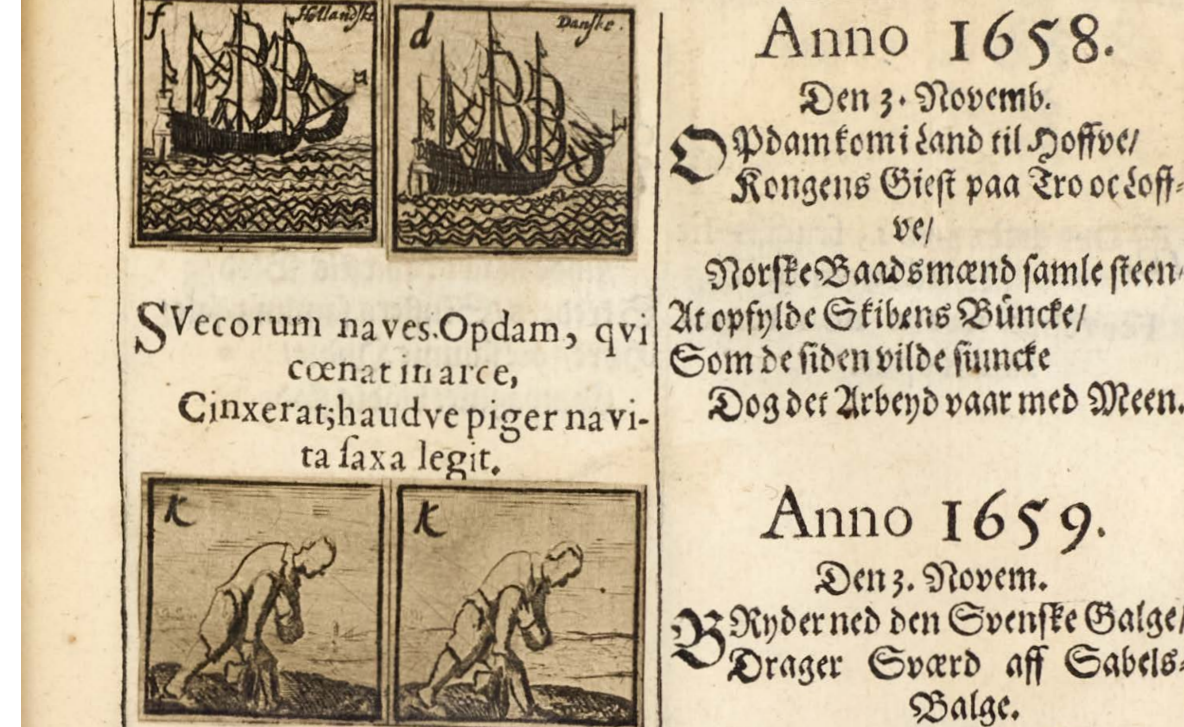 f Hollandske
d Danske.
SVecorum naves. Opdam, qvi
cœnat in arce,
Cinxerat; haudve piger navi-
ta ſaxa legit.
K
K
Anno 1658.
Den 3. Novemb.
OPdam kom i Land til Hoffve/
Kongens Gieſt paa Tro oc Loff-
ve/
Norſke Baadsmænd ſamle ſteen
At opfylde Skibens Büncke/
Som de ſiden vilde ſiuncke
Dog det Arbeyd vaar med Meen.
Anno 1659.
Den 3. Novem.
BRyder ned den Svenſke Galge/
Drager Sværd aff Sabels-
Balge.